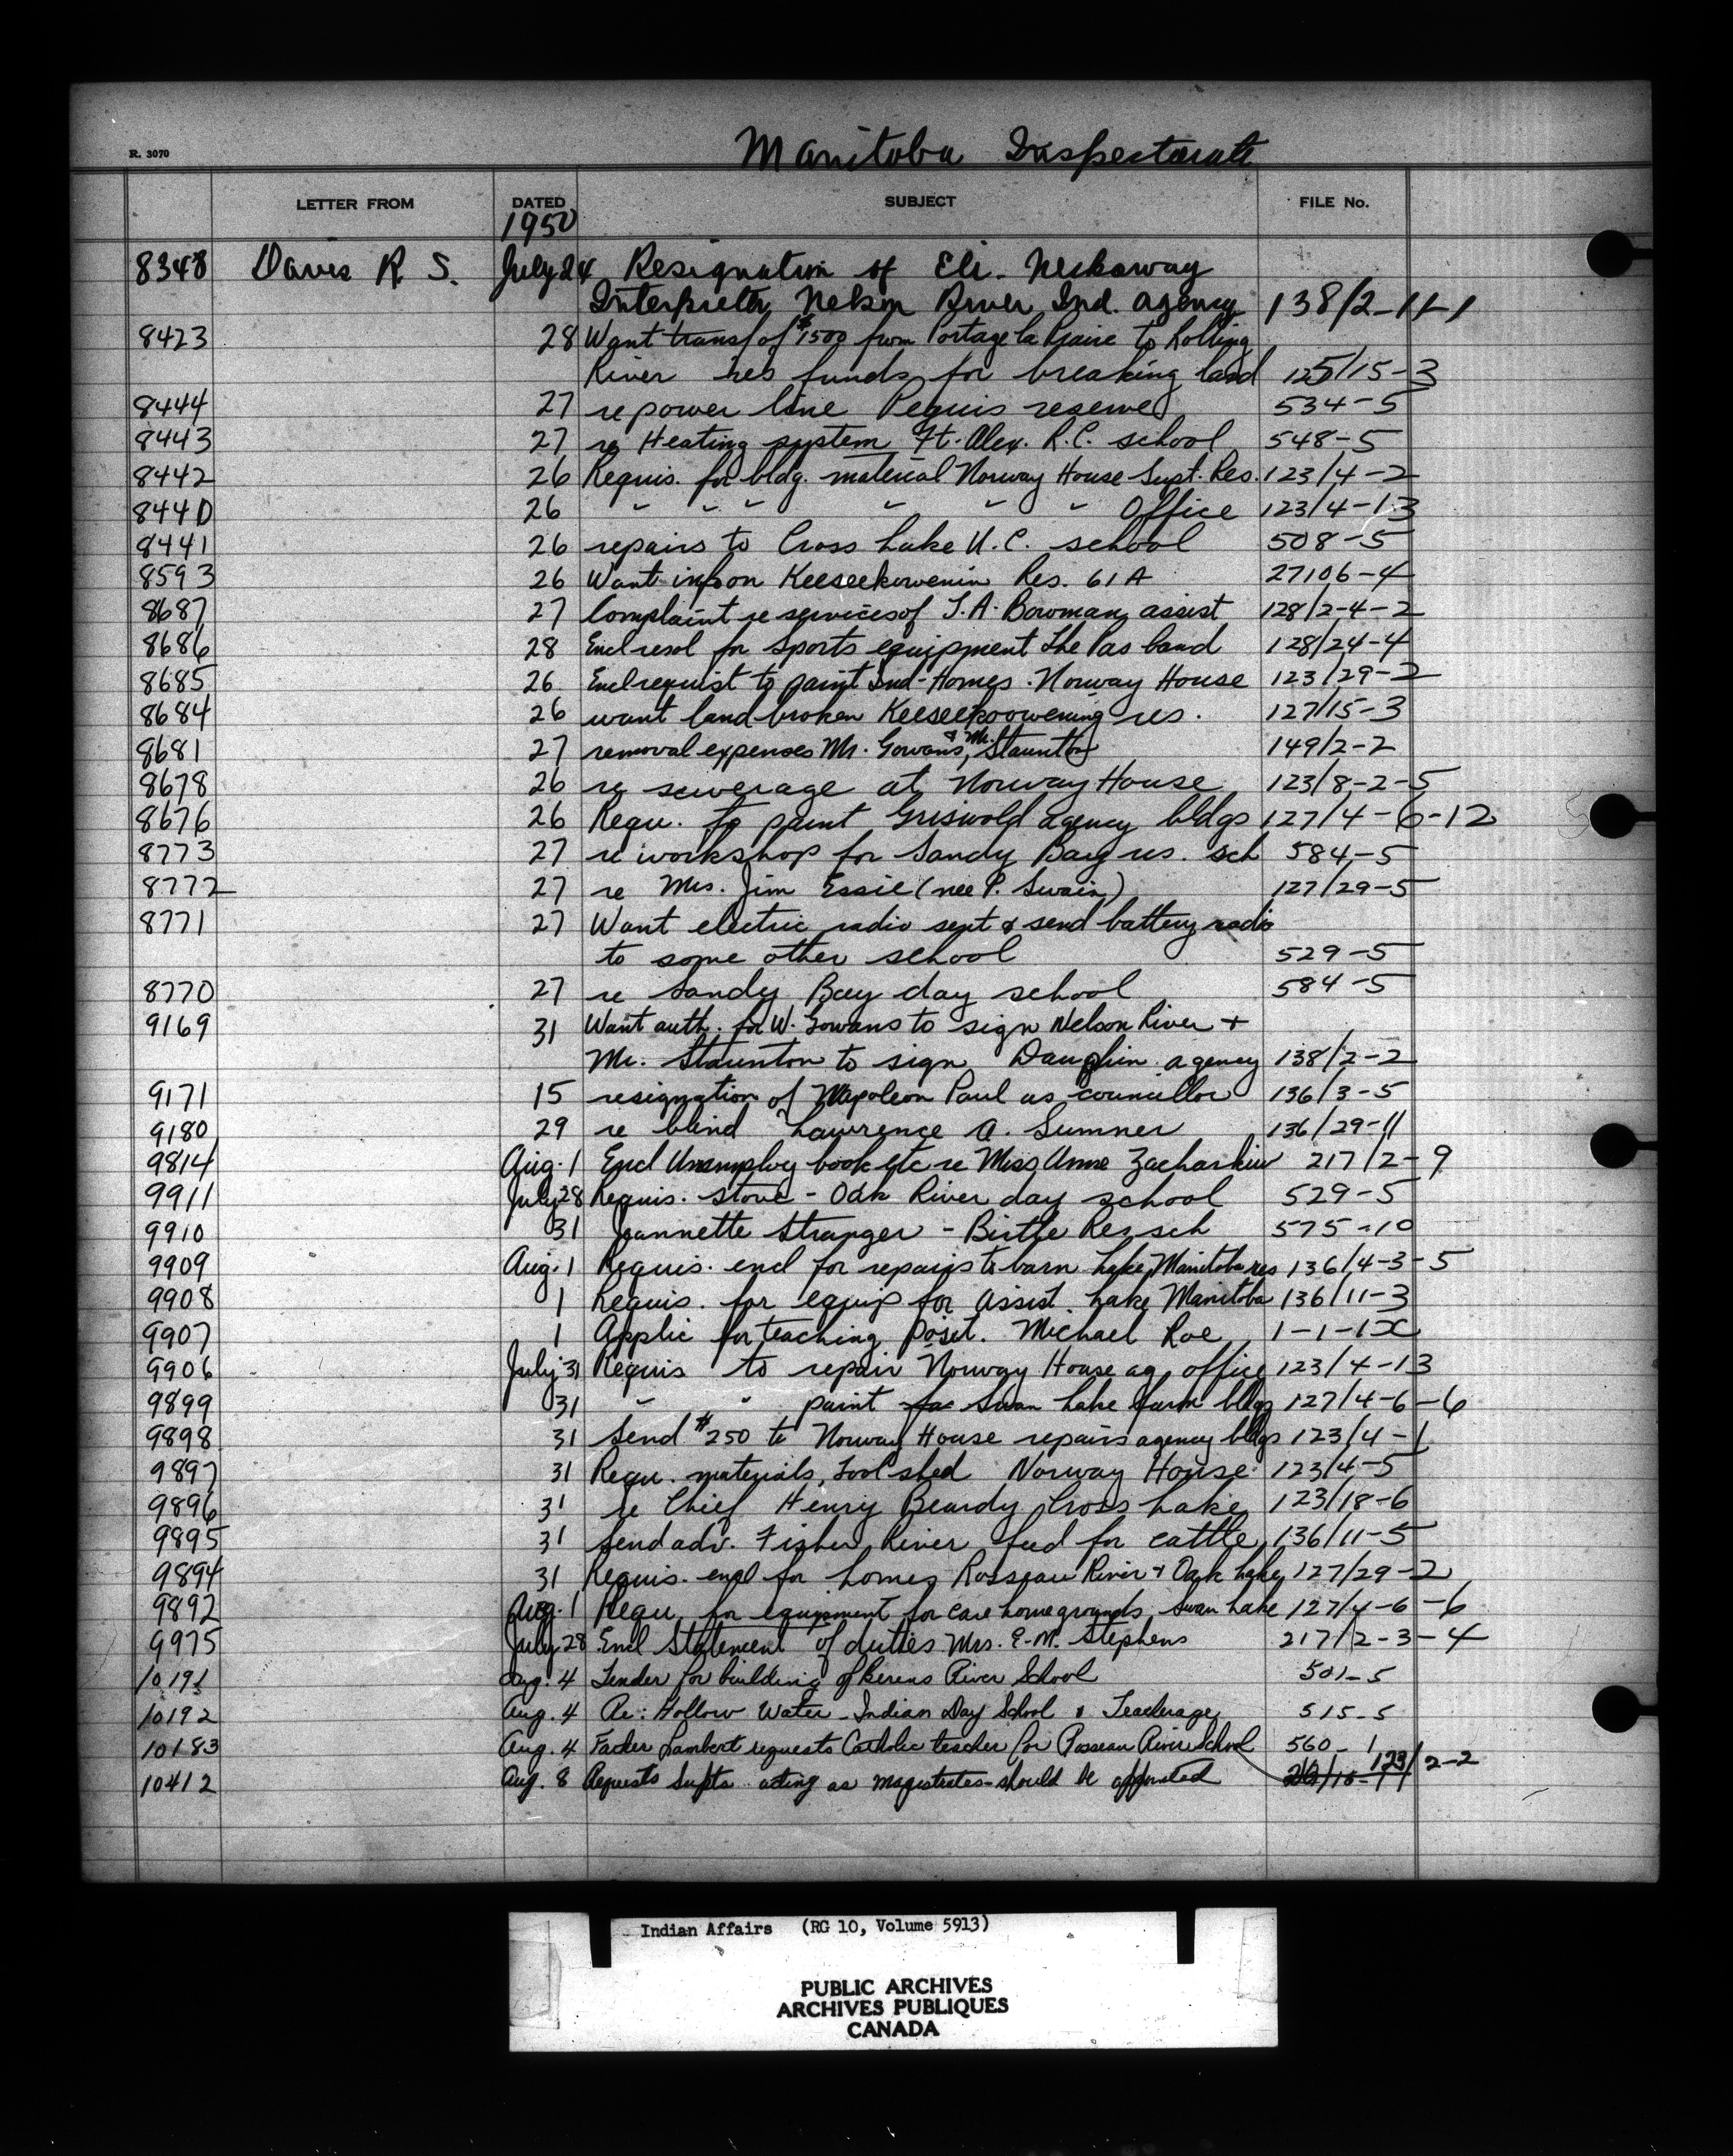 Manitoba Inspectorate
R. 3070
LETTER FROM DATED SUBJECT FILE No.
1950
8348 Davis R. S. July 24 Resignation of Eli
Interpreter Nelson River Ind. agency 138/2-11-1
8423 28 Want transf of $1500 from Portage la Prairie to Rolling
River res funds for breaking land 125/15-3
8444 27 re power line Peguis reserve 534-5
8443 27 re Heating system Ft. Alex. R.C. school 548-5
8442 26 Requis. for bldg. material Norway House Supt. Res. 123/4-2
8440 26 " " " " " " Office 123/4-13
8441 26 repairs to Cross Lake U.C. school 508-5
8593 26 Want info on Keeseekowenin Res. 61A 27106-4
8687 27 Complaint re services of J.A. Bowman assist 128/2-4-2
8686 28 Encl resol for sports equipment The Pas band 128/24-4
8685 26 Encl requist to paint Ind-Homes. Norway House 123/29-2
8684 26 want land broken Keeseekoowening res. 127/15-3
8681 27 removal expenses Mr. Gowans, & Mr. Staunton 149/2-2
8678 26 re sewerage at Norway House 123/8-2-5
8676 26 Requ. to paint Griswold agency bldgs 127/4-6-12
8773 27 re workshop for Sandy Bay res. sch 584-5
8772 27 re Mrs. Jim Essie (nee P. Swain) 127/29-5
8771 27 Want electric radio sent & send battery radio
to some other school 529-5
8770 27 re Sandy Bay day school 584-5
9169 31 Want auth. for W. Gowans to sign Nelson River +
Mr. Staunton to sign Dauphin agency 138/2-2
9171 15 resignation of Napoleon Paul as councillor 136/3-5
9180 29 re blind Lawrence A. Sumner 136/29-11
9814 Aug. 1 Encl Unemploy book etc re Miss Anne 217/2-9
9911 July 28 Requis. stove - Oak River day school 529-5
9910 31 Jeannette Stranger - Birtle Res. sch 575-10
9909 Aug. 1 Requis. encl for repairs to barn Lake Manitoba res 136/4-3-5
9908 1 Requis. for equip for assist. Lake Manitoba 136/11-3
9907 1 Applic for teaching posit. Michael Roe 1-1-1X
9906 July 31 Requis to repair Norway House ag. office 123/4-13
9899 31 " " paint for Swan Lake farm bldgs 127/4-6-6
9898 31 Send $250 to Norway House repairs agency bldgs 123/4-1
9897 31 Requ. materials, tool shed Norway House 123/4-5
9896 31 re Chief Henry Beardy Cross Lake 123/18-6
9895 31 Send adv. Fisher River feed for cattle 136/11-5
9894 31 Requis. encl for homes Rosseau River & Oak Lake 127/29-2
9892 Aug. 1 Requ for equipment for care home grounds Swan Lake 127/4-6-6
9975 July 28 Encl Statement of duties Mrs. E.M. Stephens 217/2-3-4
10191 Aug. 4 Tender for building of Berens River School 501-5
10192 Aug. 4 Re: Hollow Water Indian Day School & Teacherage 515-5
10183 Aug. 4 Father Lambert requests Catholic teacher for Rosseau River School 560-1
10412 Aug. 8 Requests Supts acting as magistrates should be appointed 123/2-2
Indian Affairs (RG 10, Volume 5913)
PUBLIC ARCHIVES
ARCHIVES PUBLIQUES
CANADA